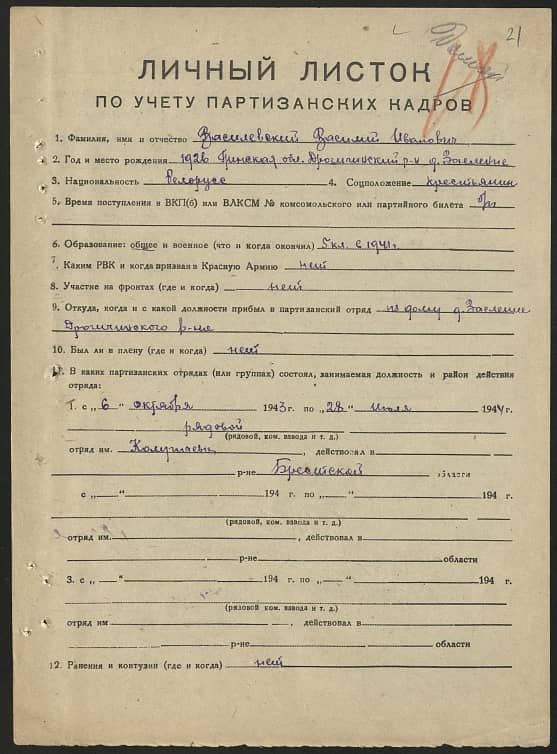 21
ЛИЧНЫЙ ЛИСТОК
ПО УЧЕТУ ПАРТИЗАНСКИХ КАДРОВ
1. Фамилия, имя и отчество Василевский Василий Иванович
2. Год и место рождения 1926 Пинская обл. Дрогичинский р-н д. Заеленье
3. Национальность белорусс 4. Соцположение крестьянин
5. Время поступления в ВКП(б) или ВЛКСМ № комсомольского или партийного билета б/п
6. Образование: общее и военное (что и когда окончил) 5 кл. в 1941 г.
7. Каким РВК и когда призван в Красную Армию нет
8. Участие на фронтах (где и когда) нет
9. Откуда, когда и с какой должности прибыл в партизанский отряд из дому д. Заеленье
Дрогичинского р-на
10. Был ли в плену (где и когда) нет
11. В каких партизанских отрядах (или группах) состоял, занимаемая должность и район действия
отряда:
1. с „6“ октября 1943 г. по „28“ июля 1944 г.
рядовой
(рядовой, ком. взвода и т. д.)
отряд им. , действовал в
р-не Брестской области
с „ “ 194 г. по „ “ 194 г.
(рядовой, ком. взвода и т. д.)
отряд им. , действовал в
р-не области
3. с „ “ 194 г. по „ “ 194 г.
(рядовой, ком. взвода и т. д.)
отряд им , действовал в
р-не области
12. Ранения и контузии (где и когда) нет